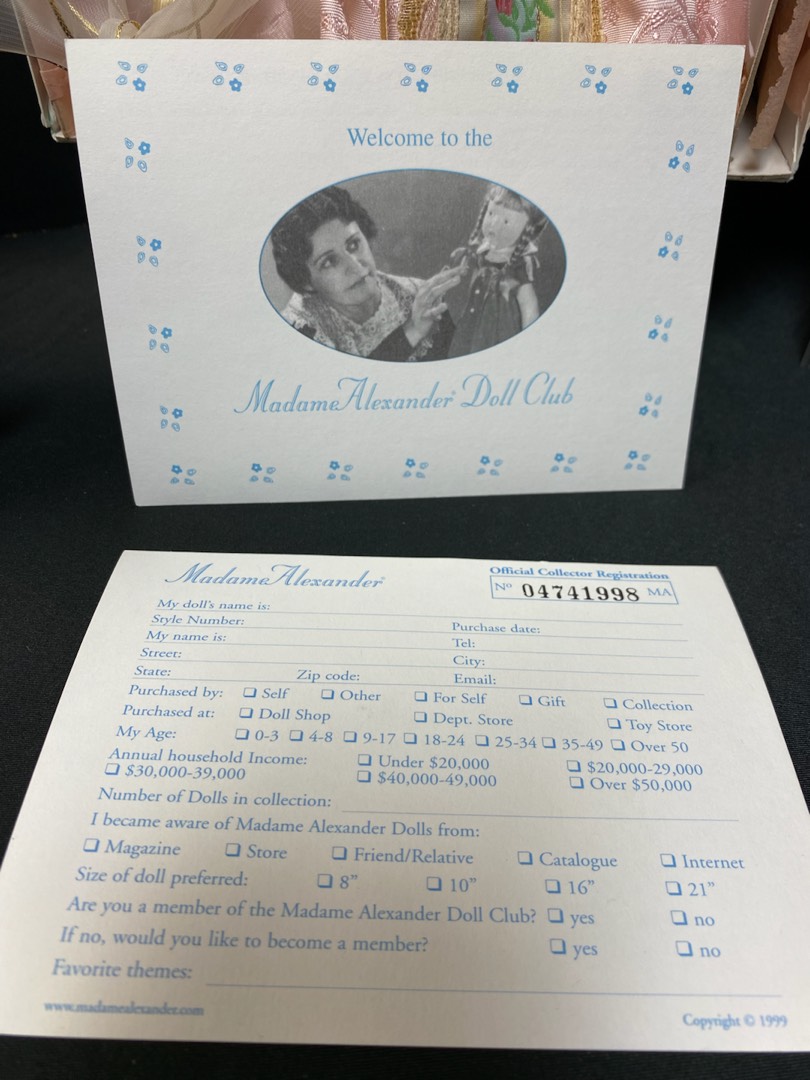 Welcome to the
Madame Alexander® Doll Club
Madame Alexander®
Official Collector Registration
Nº 04741998 MA
My doll's name is:
Style Number: Purchase date:
My name is: Tel:
Street: City:
State: Zip code: Email:
Purchased by: ❏ Self ❏ Other ❏ For Self ❏ Gift ❏ Collection
Purchased at: ❏ Doll Shop ❏ Dept. Store ❏ Toy Store
My Age: ❏ 0-3 ❏ 4-8 ❏ 9-17 ❏ 18-24 ❏ 25-34 ❏ 35-49 ❏ Over 50
Annual household Income: ❏ Under $20,000 ❏ $20,000-29,000
❏ $30,000-39,000 ❏ $40,000-49,000 ❏ Over $50,000
Number of Dolls in collection:
I became aware of Madame Alexander Dolls from:
❏ Magazine ❏ Store ❏ Friend/Relative ❏ Catalogue ❏ Internet
Size of doll preferred: ❏ 8" ❏ 10" ❏ 16" ❏ 21"
Are you a member of the Madame Alexander Doll Club? ❏ yes ❏ no
If no, would you like to become a member? ❏ yes ❏ no
Favorite themes:
www.madamealexander.com Copyright © 1999